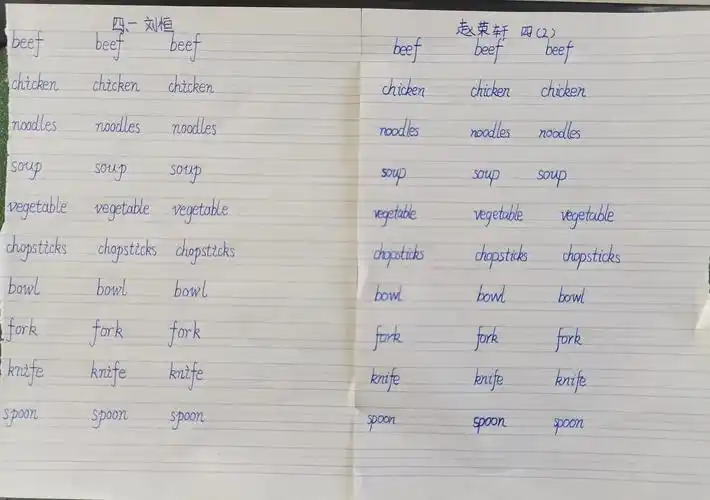 四、一 刘恒
beef beef beef
chicken chicken chicken
noodles noodles noodles
soup soup soup
vegetable vegetable vegetable
chopsticks chopsticks chopsticks
bowl bowl bowl
fork fork fork
knife knife knife
spoon spoon spoon
赵荣轩 四(2)
beef beef beef
chicken chicken chicken
noodles noodles noodles
soup soup soup
vegetable vegetable vegetable
chopsticks chopsticks chopsticks
bowl bowl bowl
fork fork fork
knife knife knife
spoon spoon spoon